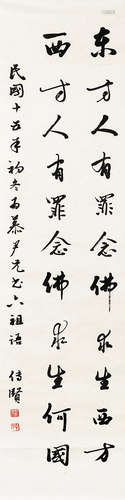 东方人有罪念佛求生西方
西方人有罪念佛求生何國
民國十五年初冬為慕尹兄書六祖語
傳賢